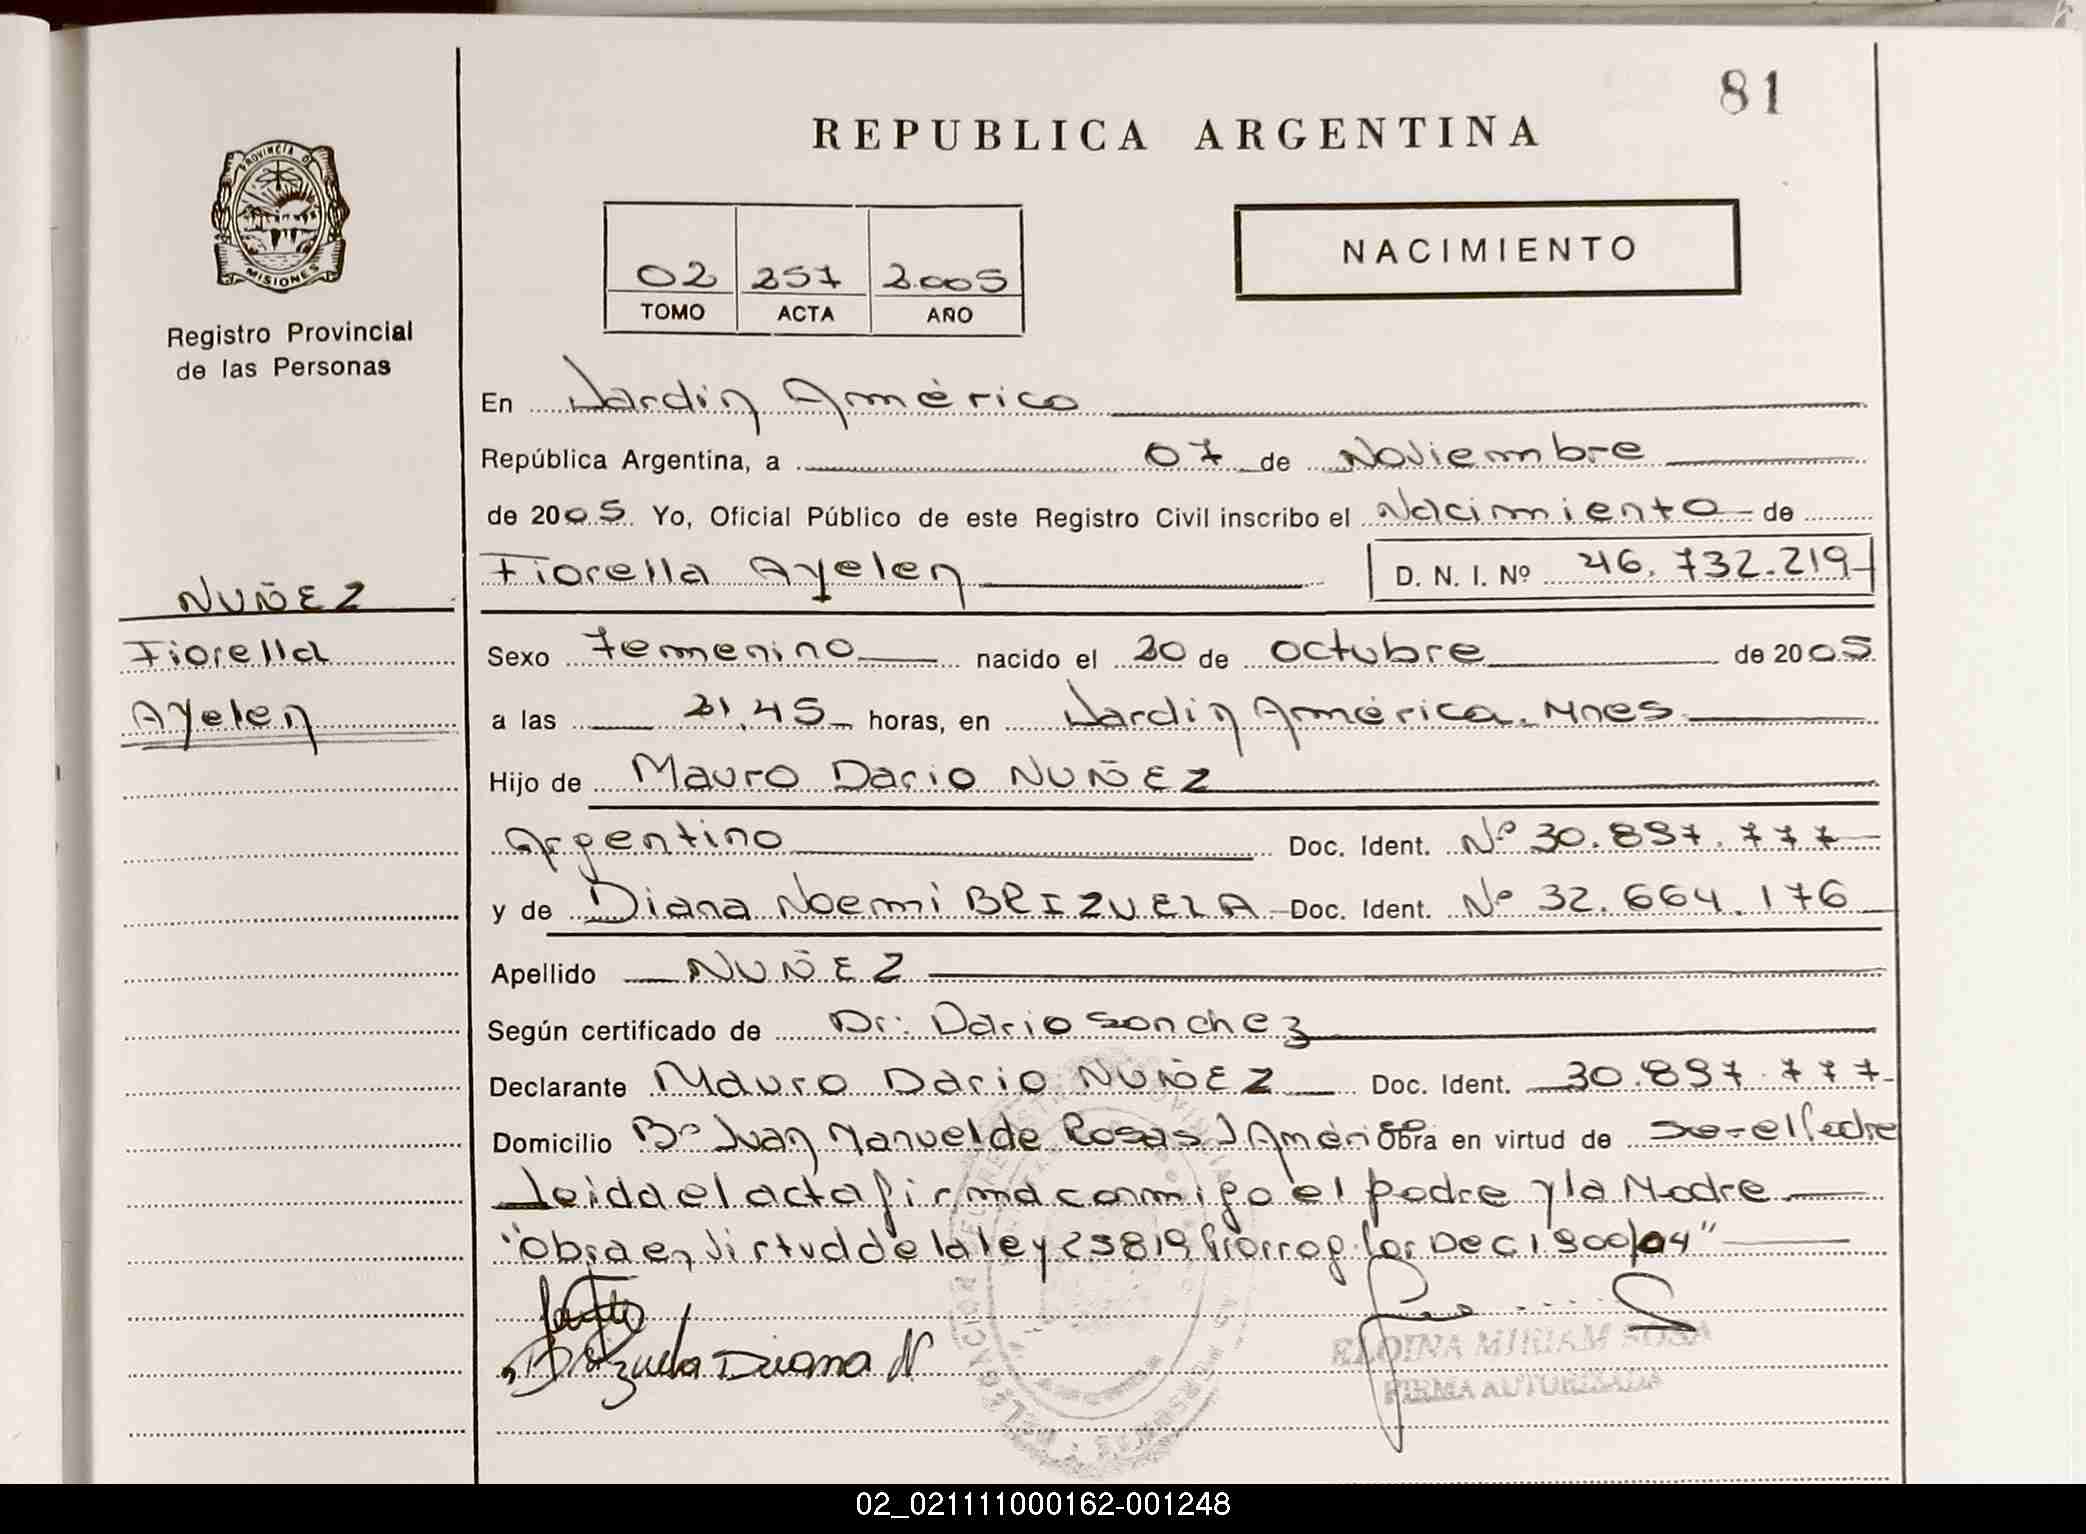 81
REPUBLICA ARGENTINA
PROVINCIA DE
MISIONES
Registro Provincial
de las Personas
NACIMIENTO
02 257 2.005
TOMO ACTA AÑO
En Jardín América
República Argentina, a 07 de Noviembre
de 2005. Yo, Oficial Público de este Registro Civil inscribo el Nacimiento de
Fiorella Ayelen D. N. I. Nº 46.732.219
NUÑEZ
Fiorella
Ayelen
Sexo Femenino nacido el 20 de octubre de 2005
a las 21,45 horas, en Jardín América. Mnes
Hijo de Mauro Dario NUÑEZ
Argentino Doc. Ident. Nº 30.897.777
y de Diana Noemi BRIZUELA Doc. Ident. Nº 32.664.176
Apellido NUÑEZ
Según certificado de Dr: Dario Sanchez
Declarante Mauro Dario NUÑEZ Doc. Ident. 30.897.777
Domicilio Bº Juan Manuel de Rosas J Améri Obra en virtud de Ser el Padre
Leida el acta firma conmigo el padre y la Madre
"Obra en virtud de la ley 25819 Prorrog. por Dec 1900/04"
Brizuela Diana N
ELDINA MIRIAM SOSA
FIRMA AUTORIZADA
02_021111000162-001248